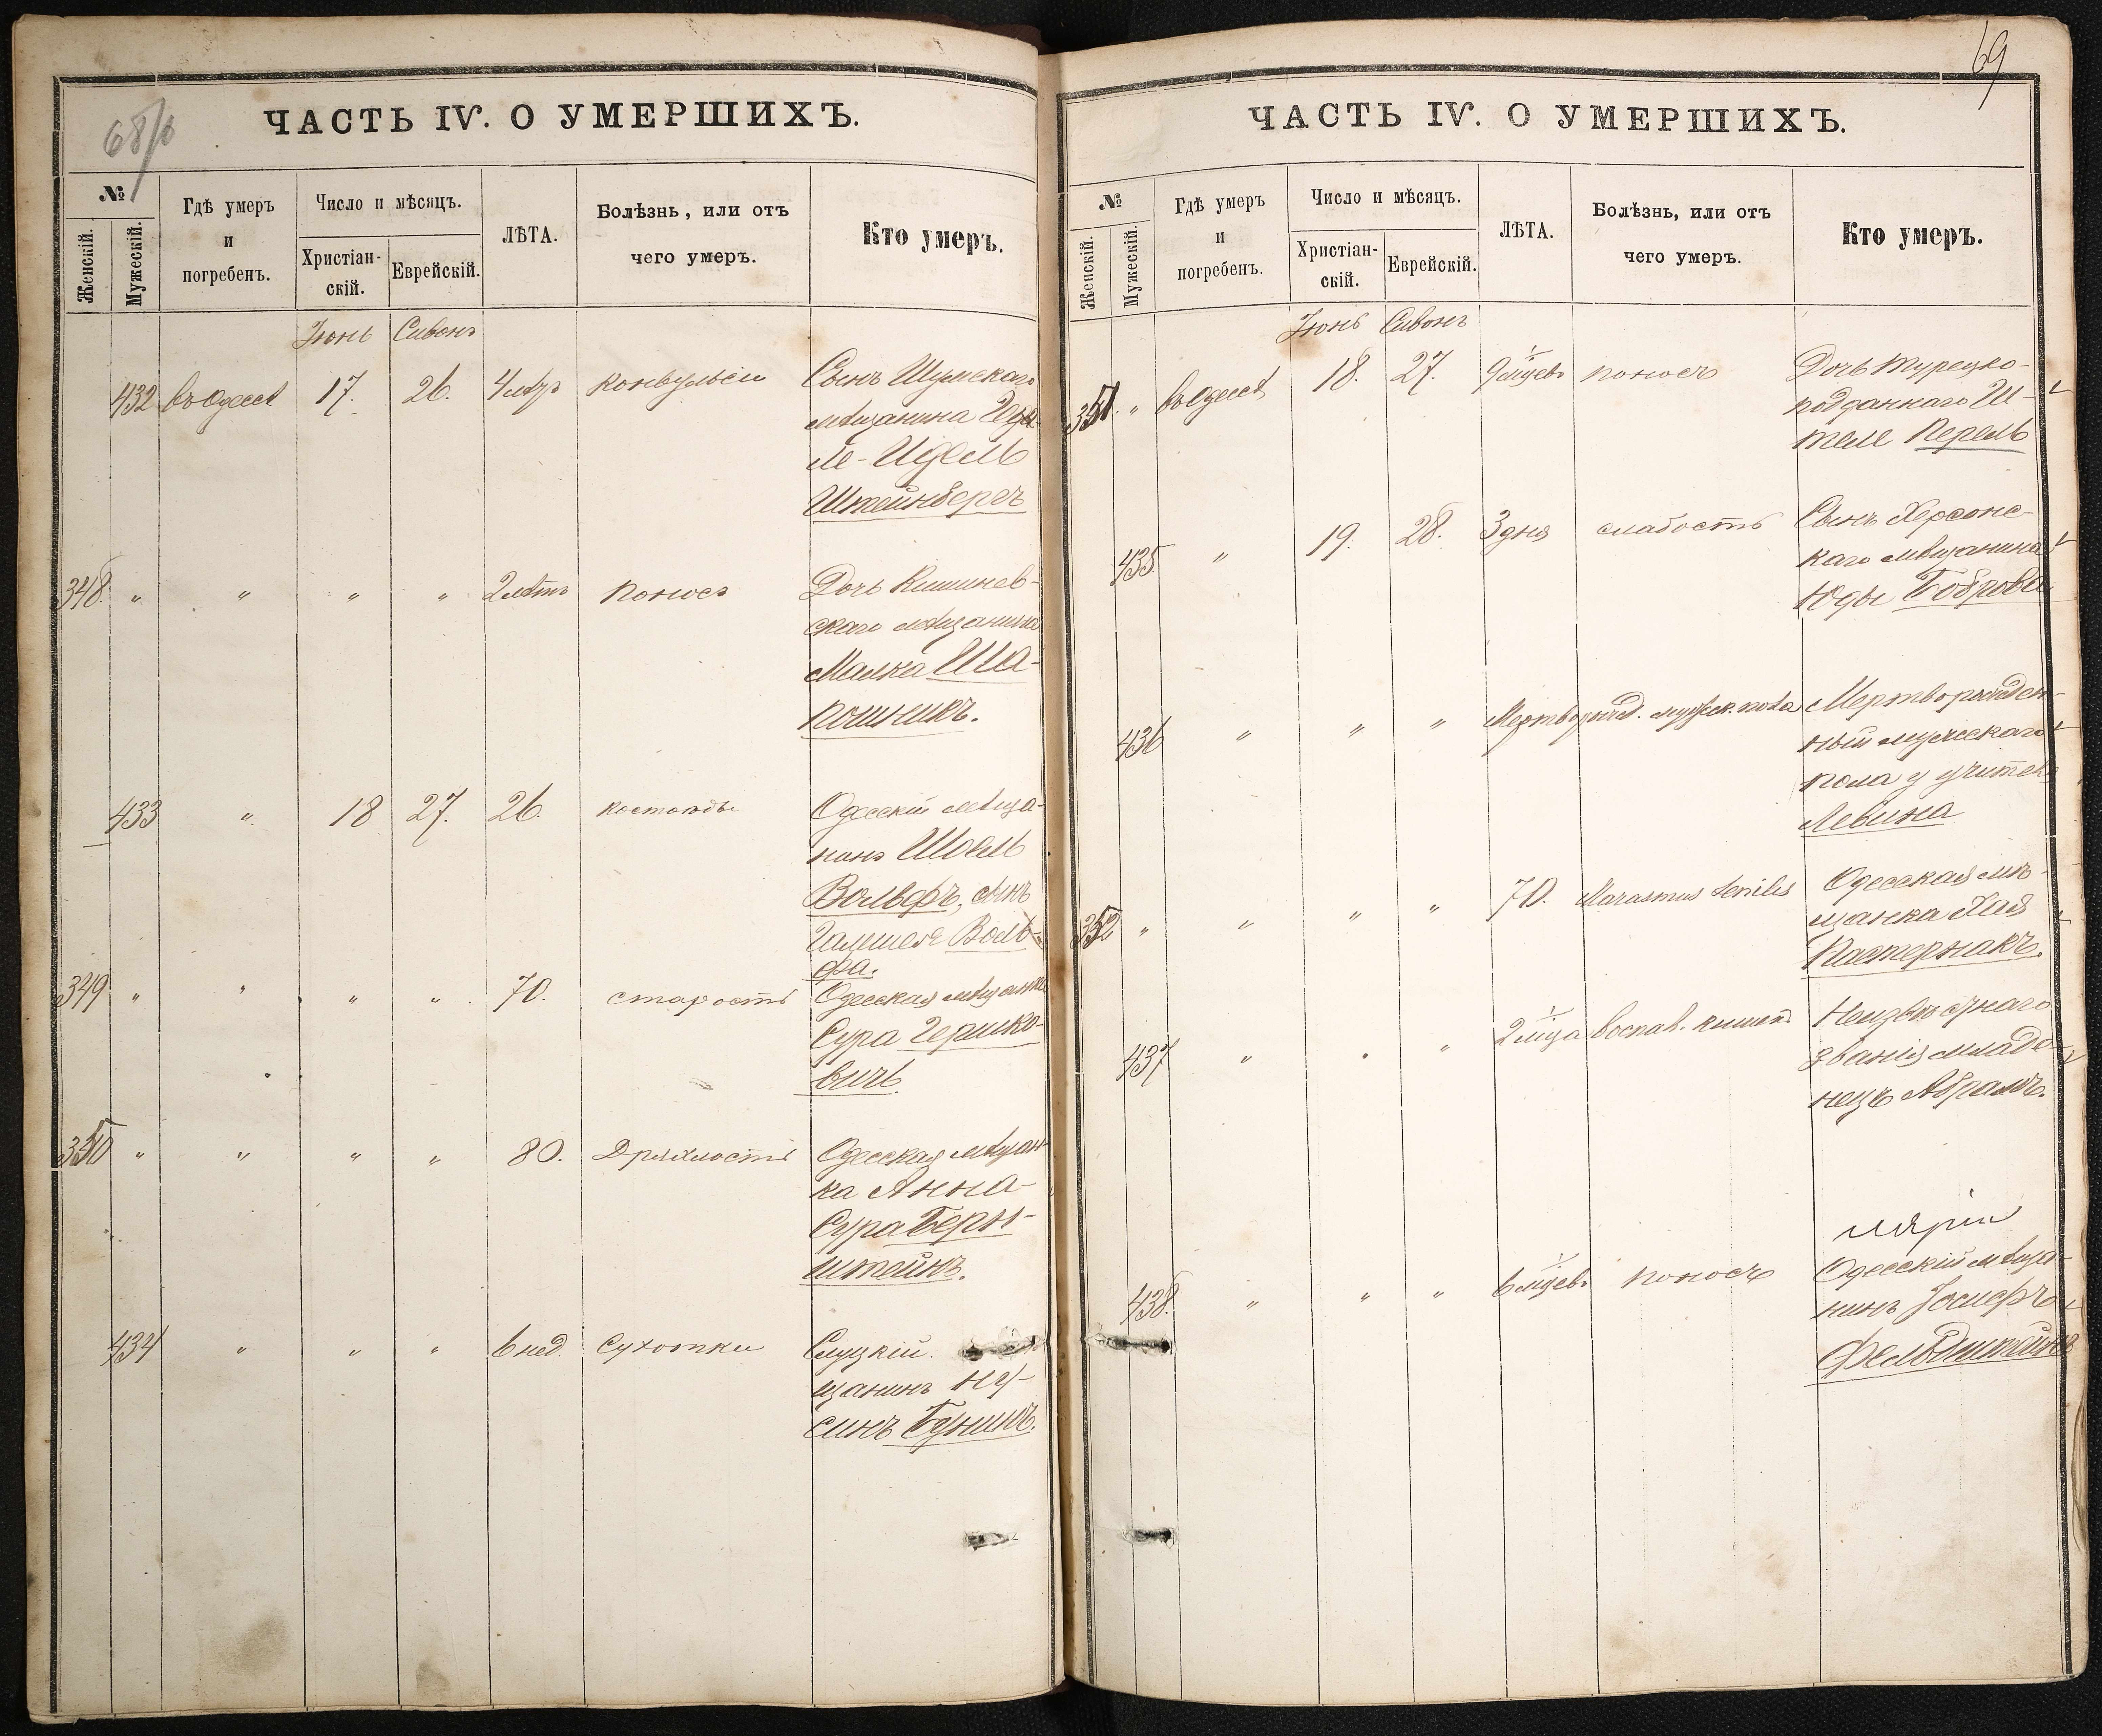 68/б
ЧАСТЬ IV. О УМЕРШИХЪ.
№
Женскій.
Мужескій.
Гдѣ умеръ
и
погребенъ.
Число и мѣсяцъ.
Христіан-
скій.
Еврейскій.
ЛѢТА.
Болѣзнь, или отъ
чего умеръ.
Кто умеръ.
Іюнь Сивонъ
432 въ Одессѣ 17. 26. конвульсіи Сынъ Шумскаго
мѣщанина
ле-Идель
Штейнбергъ
348. " " " " 2 лѣтъ поносъ Дочь Кишинев-
скаго мѣщанина
Малка Ша-
почникъ.
433 " 18 27. 26. костоѣды Одесскій мѣща-
нинъ Шоель
Вольфъ, сынъ
Воль-
фа.
349 " " " " 70. старость Одесская мѣщанка
Сура Гершко-
вичъ.
350 " " " " 80. Дряхлость Одесская мѣщан-
ка Анна-
Сура Берн-
штейнъ.
434 " " " 6 нед. Сухотки Слуцкій
щанинъ Ну-
синъ Бунинъ.
69
ЧАСТЬ IV. О УМЕРШИХЪ.
№
Женскій.
Мужескій.
Гдѣ умеръ
и
погребенъ.
Число и мѣсяцъ.
Христіан-
скій.
Еврейскій.
ЛѢТА.
Болѣзнь, или отъ
чего умеръ.
Кто умеръ.
Іюнь Сивонъ
351. " въ Одессѣ 18. 27. 9 мцевъ поносъ Дочь турецко-
подданнаго Ш-
теле Перель
435 " 19. 28. 3 дня слабость Сынъ Херсонс-
каго мѣщанина
Юды Боброва
436 " " " Мертворожд. мужеск. пола Мертворожден-
ный мужескаго
пола у учителя
Левина
352 " " " " 70. Marasmus senilis Одесская мѣ-
щанка Хая
Пастернакъ.
437 " " " 2 мца воспал. кишекъ Неизвѣстнаго
званія младе-
нецъ Абрамъ.
438. " " " 6 мцевъ поносъ Одесскій мѣща-
нинъ Іосифъ
Фельдштейнъ